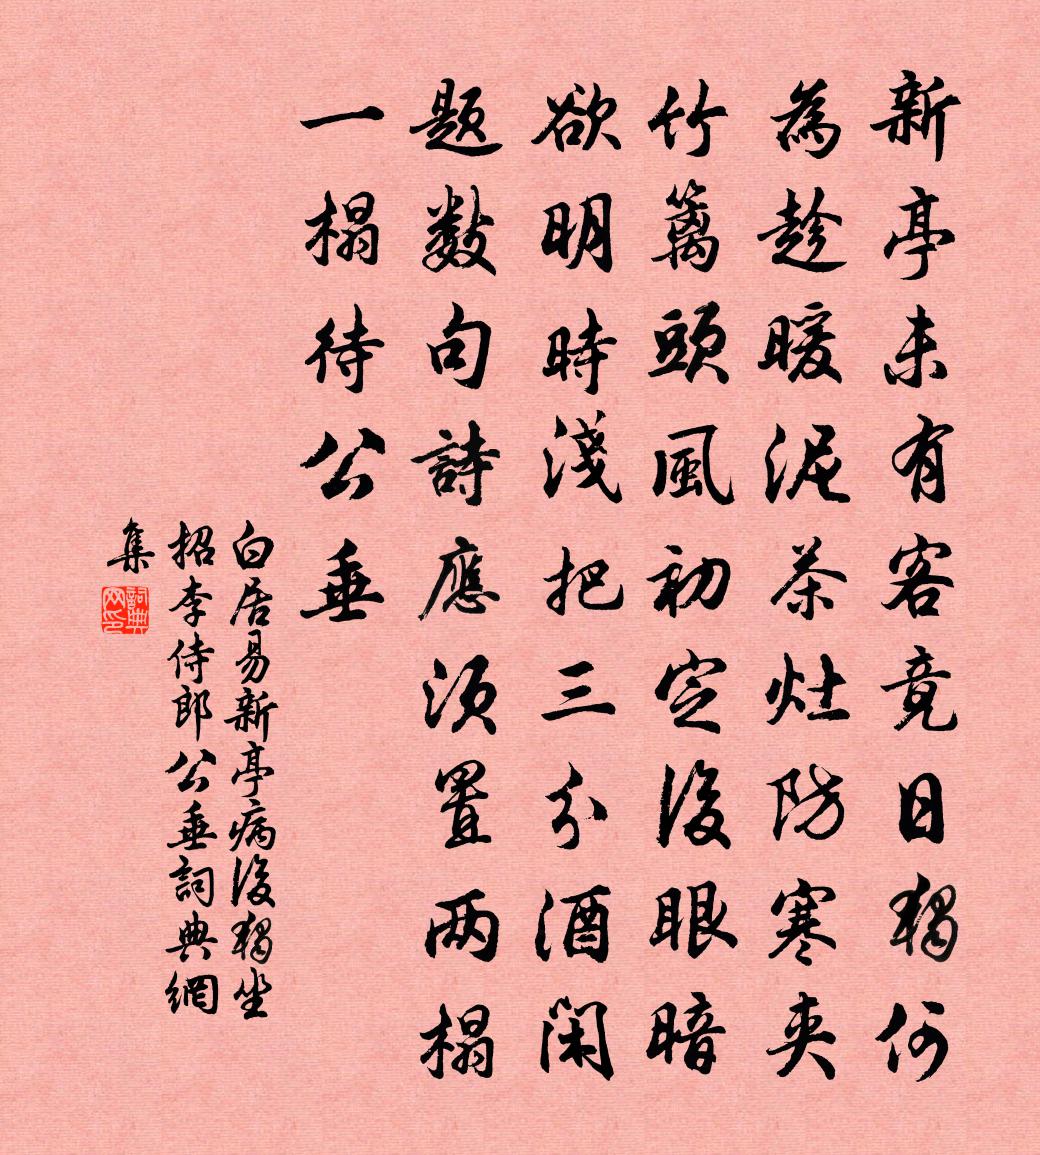 新亭未有客竟日獨何
為趁暖泥茶灶防寒夾
竹篱頭風初定後眼暗
欲明時淺把三分酒閑
题數句詩應须置两榻
一榻待公垂
白居易新亭病後獨坐
招李侍郎公垂詞典網
集
詞典
网印